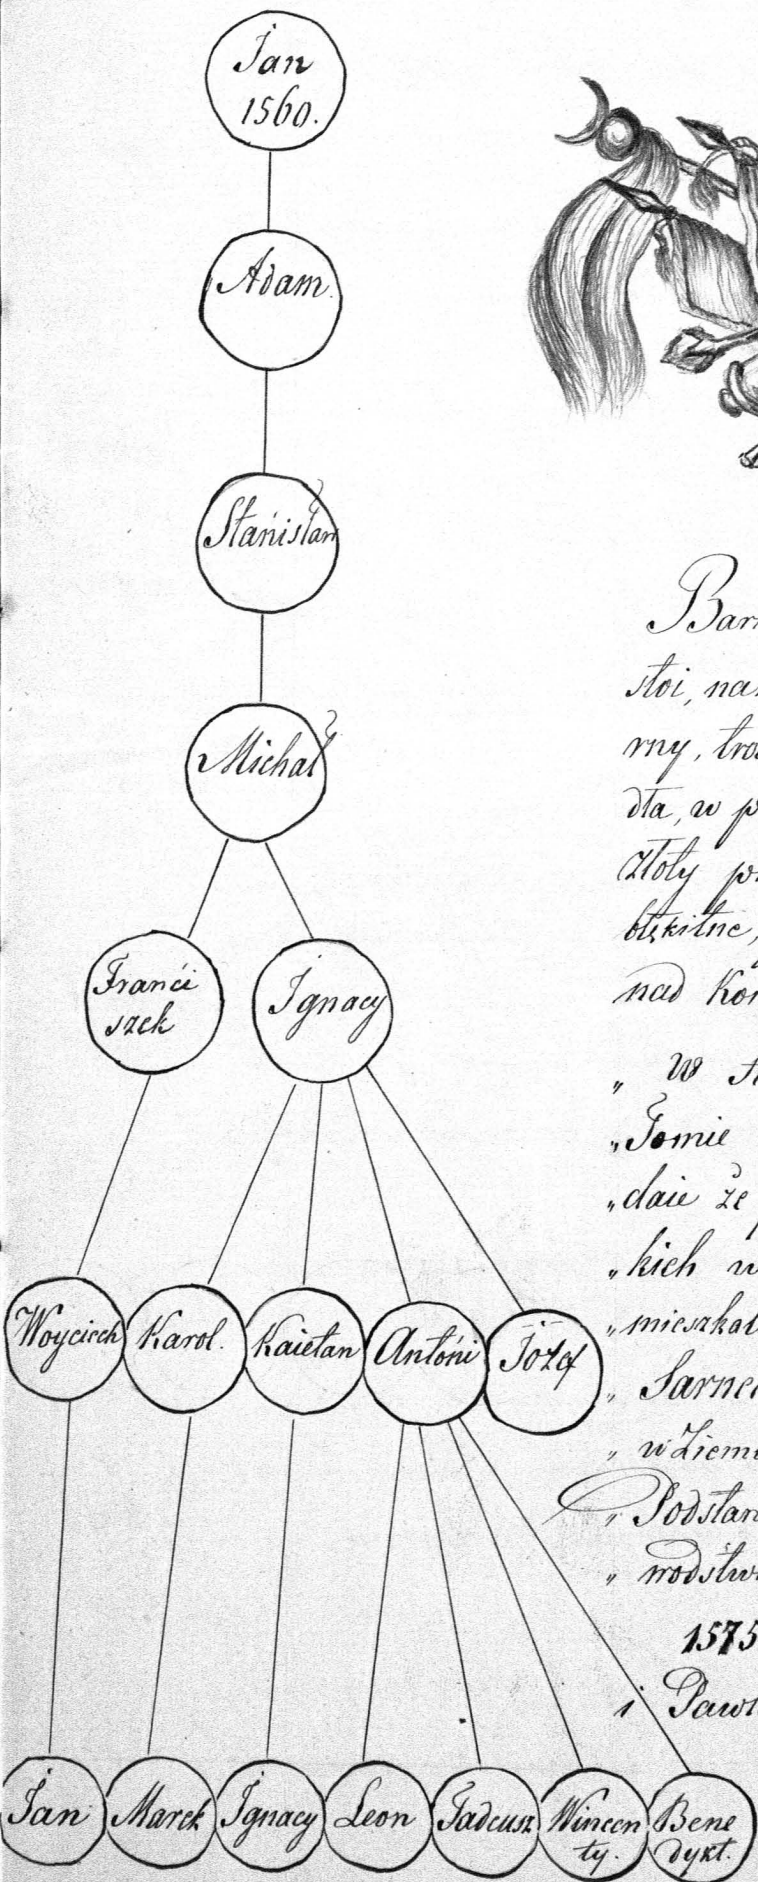 Jan
1560.
Adam.
Stanisław
Michał
Franci
szek
Ignacy
Woyciech
Karol.
Kaietan
Antóni
Józef
Jan
Marek
Ignacy
Leon
Tadeusz
Wincen
ty.
Bene
dykt.
Bar
stoi, na
rny, tro
dła, w p
złoty p
błękitne,
nad Kor
„ W
„Tomie
„daie że
„kich w
„mieszkał
„ Sarne
„ w Ziemi
„ Podstar
„ wodstw
1575
i Pawł